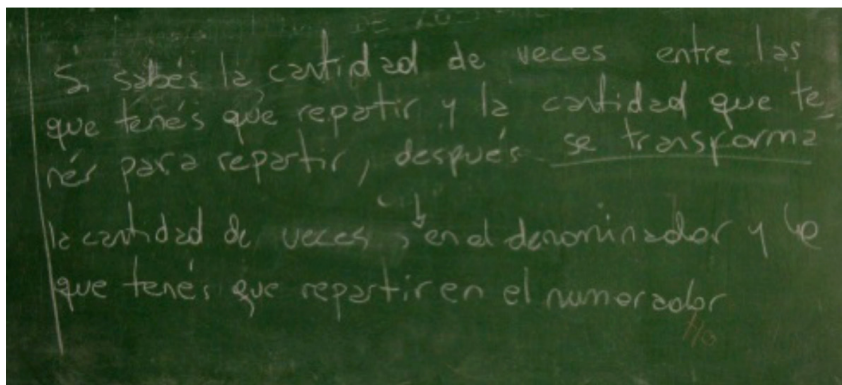 Si sabés la cantidad de veces entre las
que tenés que repartir y la cantidad que te_
nés para repartir, después se transforma
la cantidad de veces, en el denominador y lo
que tenés que repartir en el numerador